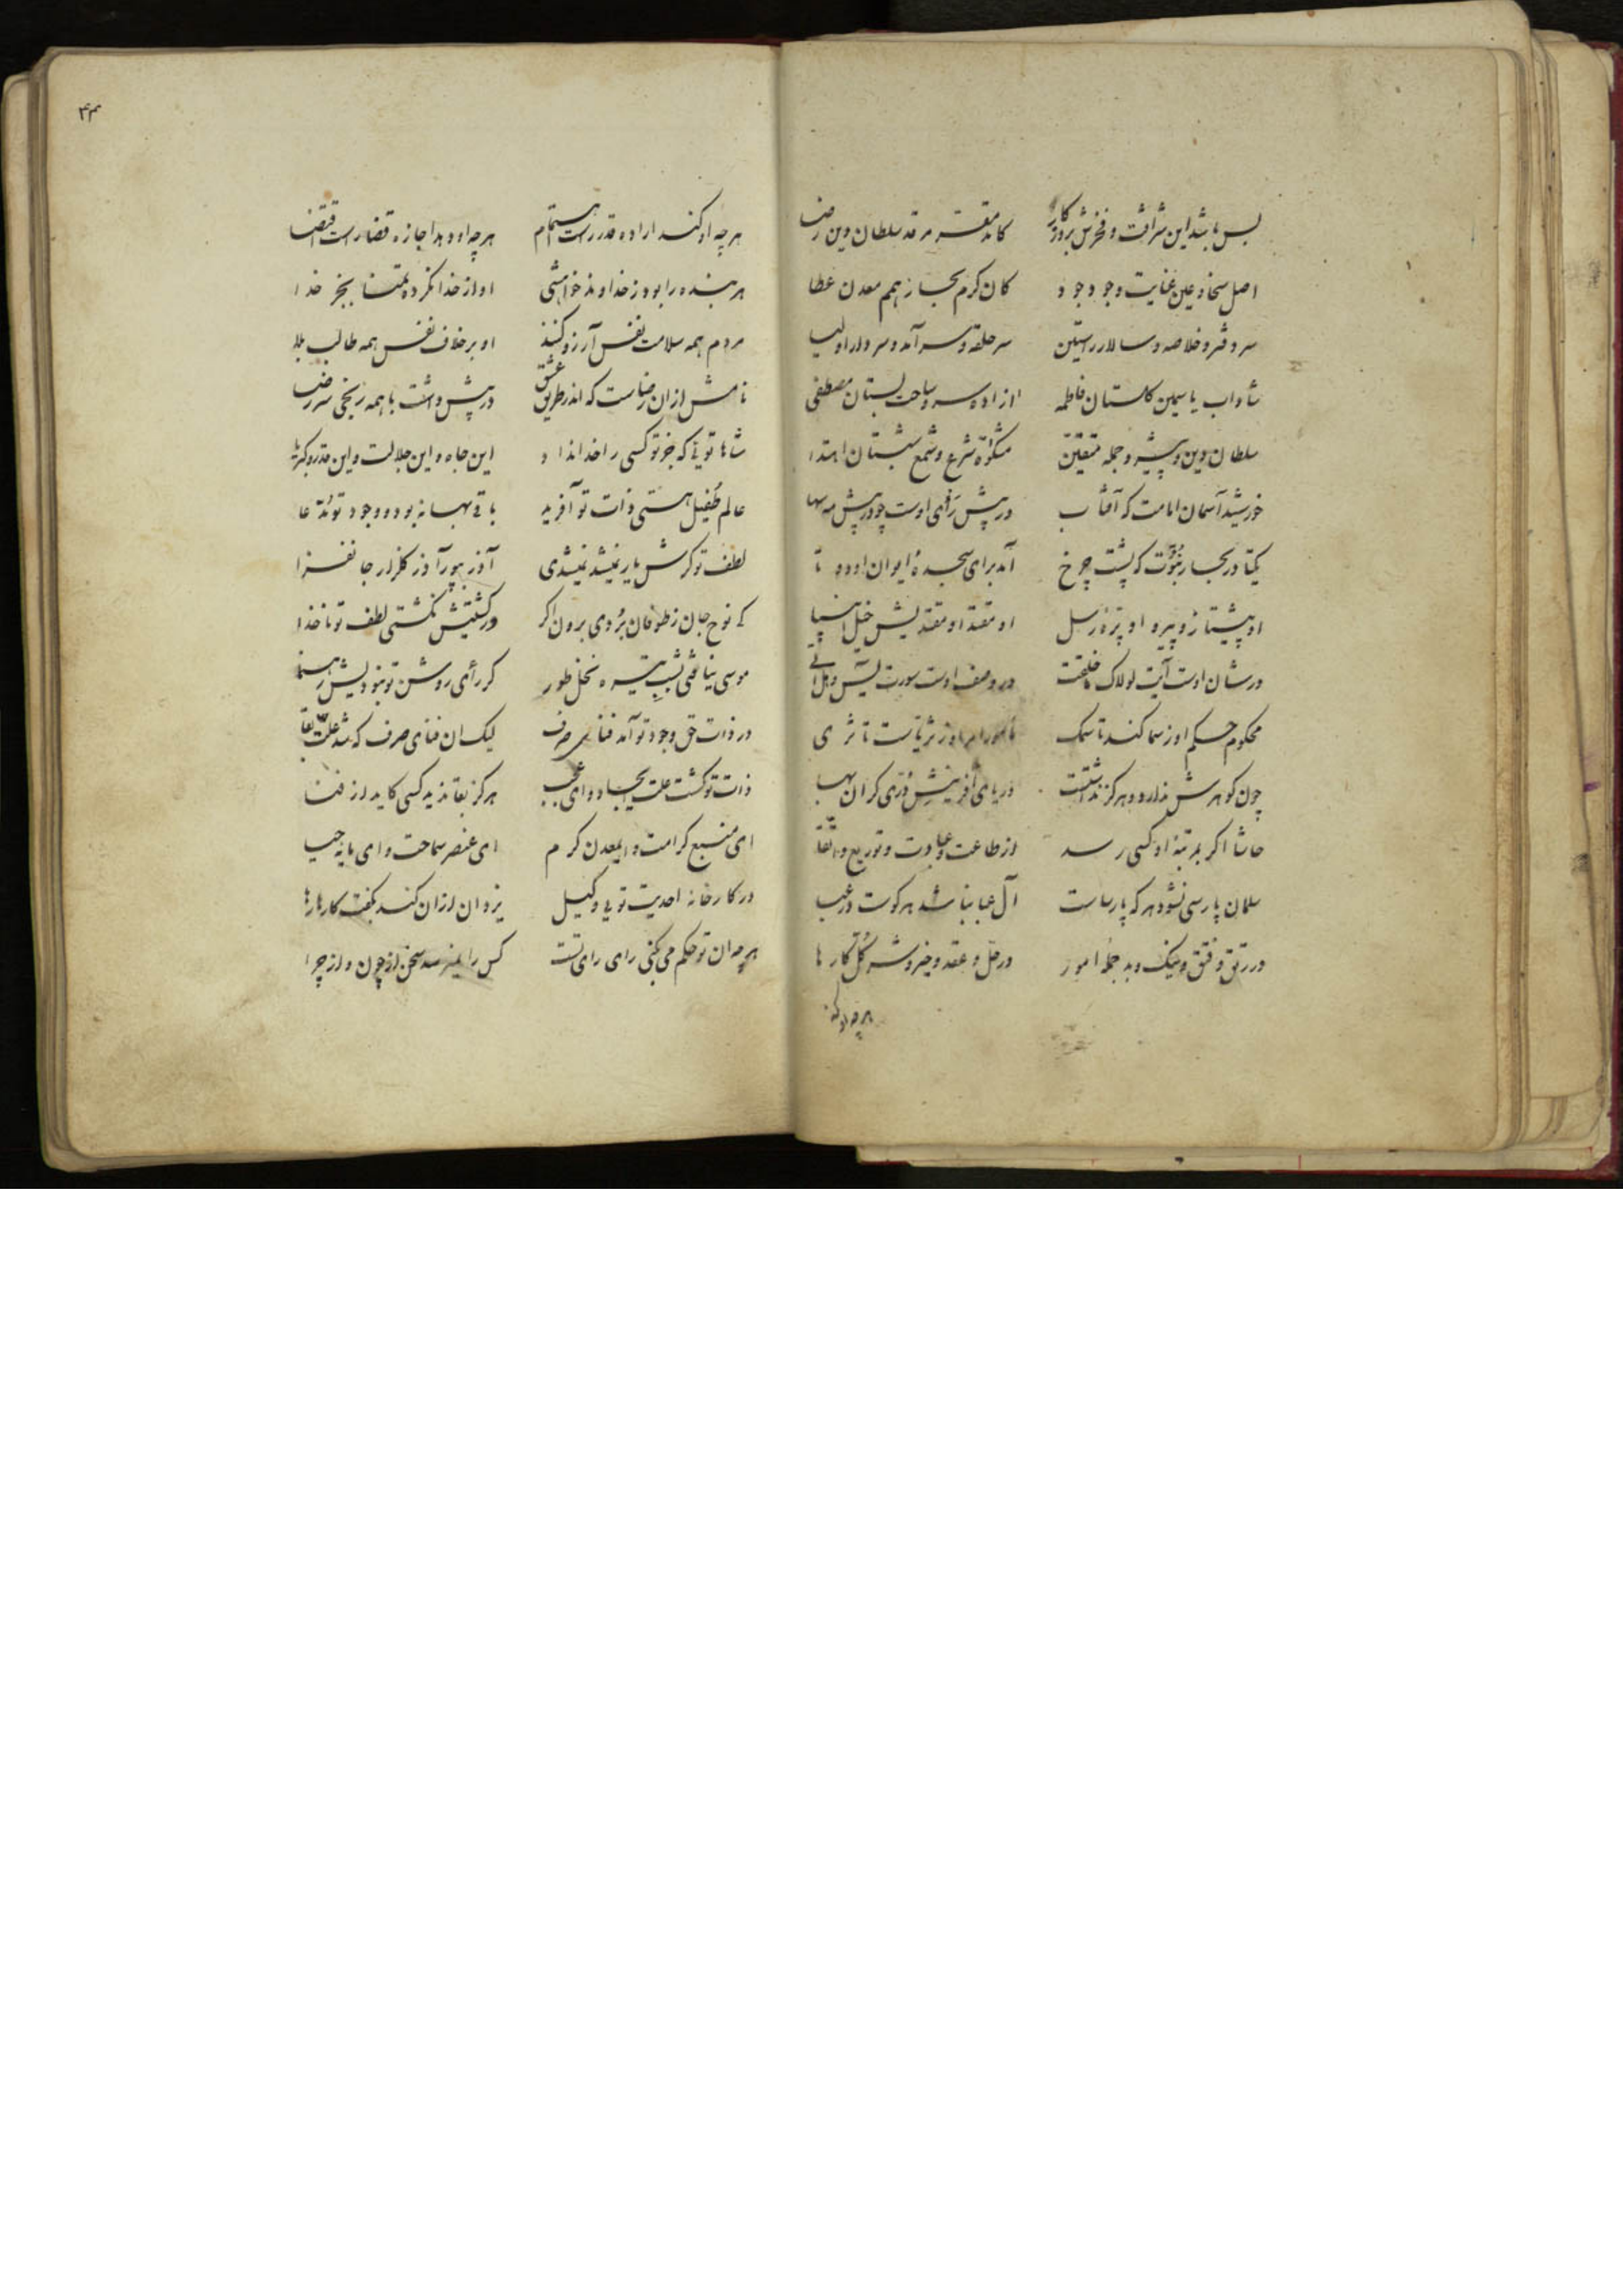 بس باشد این شرافت و فخرش بروزکار کامد مقر مرقد سلطان دین رضا
اصل سخا و عین عنایت وجود جود کان کرم بحار همم معدن عطا
سر دفتر و خلاصه و سالار راستین سر حلقه و سرآمد و سردار اولیا
شاداب یاسمین کلستان فاطمه ازاده سرو ساحت بستان مصطفی
سلطان دین و پیشرو جمله متقین مشکوة شرع و شمع شبستان اهتدا
خورشید آسمان امامت که آفتاب در پیش رأی اوست چو در پیش مه سها
یکتا در بحار نبوّت که پشت چرخ آمد برای سجدهٔ ایوان او دو تا
او پیشتاز و پیرو او پرهٔ رسل او مقتدا و مقتدیش خیل انبیا
در شان اوست آیت لولاک ما خلقت در وصف اوست سورت یس و هل اتی
محکوم حکم او ز سما کند تا سمک مأمور امر او ز ثریاست تا ثری
چون کوهرش ندارد و هرکز نداشتست دریای آفرینش درّی کران بها
حاشا اکر بمرتبهٔ او کسی رسد از طاعت و عبادت و توریع و اتّقا
سلمان پارسی نشود هر که پارساست آل عبا نباشد هر کوست در عبا
در رتق و فتق و نیک و بد جملهٔ امور در حلّ و عقد و خیر و شر کلّ کارها
هر چه او کند
۴۳
هر چه او کند ارادهٔ قدر راست اهتمام هر چه او دهد اجازه قضا راست اقتضا
هر بنده را بود ز خداوند خواهشی او از خدا نکرده تمنا بجز خدا
مردم همه سلامت نفس آرزو کنند او بر خلاف نفس همه طالب بلا
نامش از ان رضاست که اندر طریق عشق در پیش داشت با همه رنجی سر رضا
شاها توئی که جز تو کسی را خدا نداد این جاه و این جلالت و این قدر و کبریا
عالم طفیل هستی ذات تو آفرید باقی بهانه بود و وجود تو مدّعا
لطف تو کرش یار نمیشد نمیشدی آذر بپور آذر کلزار جانفزا
کی نوح جان ز طوفان بردی برون اکر در کشتیش نکشتی لطف تو ناخدا
موسی نیافتی بشب تیره نخل طور کر رأی روشن تو نبودیش رهنما
در ذات حق وجود تو آمد فنای صرف لیک ان فنای صرف که شد علّت بقا
ذات تو کشت علت ایجاد و ای عجب هرکز بقا ندید کسی کاید از فنا
ای منبع کرامت و ایمعدن کرم ای عنصر سماحت و ای مایهٔ حیا
در کارخانهٔ احدیت تویی وکیل یزدان از ان کند بکفت کارها رها
هر چه ان تو حکم می کنی رای رای تست کس را نمیرسد سخن از چون و از چرا